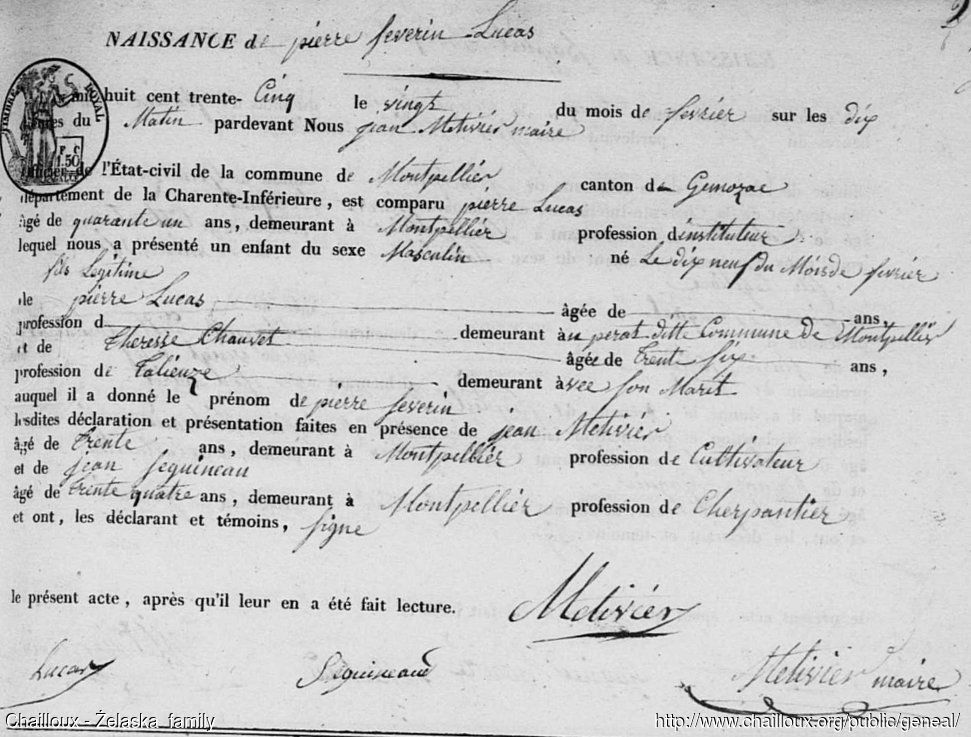 NAISSANCE de pierre severin Lucas
mil huit cent trente- Cinq le vingt du mois de fevrier sur les dix
heures du Matin pardevant Nous jean Metivier maire
TIMBRE ROYAL
1.50
officier de l'État-civil de la commune de Montpellier canton de Gemozac
département de la Charente-Inférieure, est comparu pierre Lucas
âgé de quarante un ans, demeurant à Montpellier profession d'instituteur
lequel nous a présenté un enfant du sexe Masculin né Le dix neuf du Mois de fevrier
fils Legitime
de pierre Lucas âgée de ans
profession d demeurant à au perat ditte Commune de Montpellier
et de Theresse Chauvet âgée de Trente six ans,
profession de Talieuze demeurant àvec son Marit
auquel il a donné le prénom de pierre severin
lesdites déclaration et présentation faites en présence de jean Metivier
âgé de trente ans, demeurant à Montpellier profession de Cultivateur
et de jean seguineau
âgé de trente quatre ans, demeurant à Montpellier profession de Cherpantier
et ont, les déclarant et témoins, signe
le présent acte, après qu'il leur en a été fait lecture. Metivier
Lucas Seguineaud Metivier maire
Chailloux - Żelaska family http://www.chailloux.org/public/geneal/